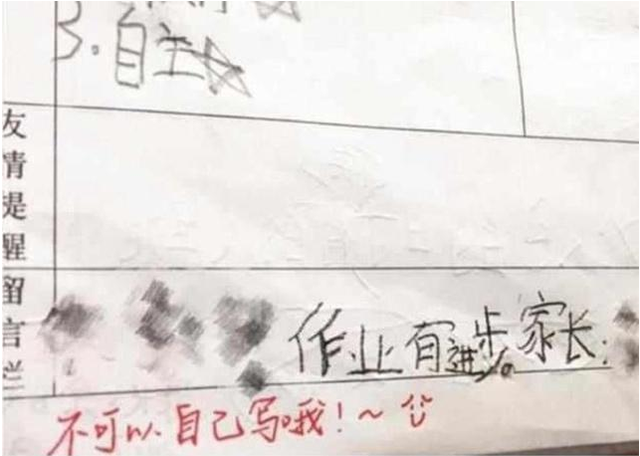 3.自主
友情提醒
留言栏
作业有进步。家长:
不可以自己写哦!~